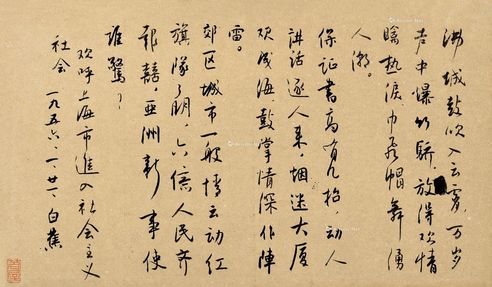 沸城鼓吹入云霄，万岁
声中爆竹骄，放得欢情
热泪，巾飞帽舞涌
人潮。
保证书高有几抬，动人
讲话逐人来，烟迷大厦
欢成海，鼓掌情深作阵
雷。
郊区城市一般情，云动红
旗队明，六亿人民齐
报喜，亚洲新事使
谁惊？
欢呼上海市進入社会主义
社会 一九五六、一、廿一、白蕉